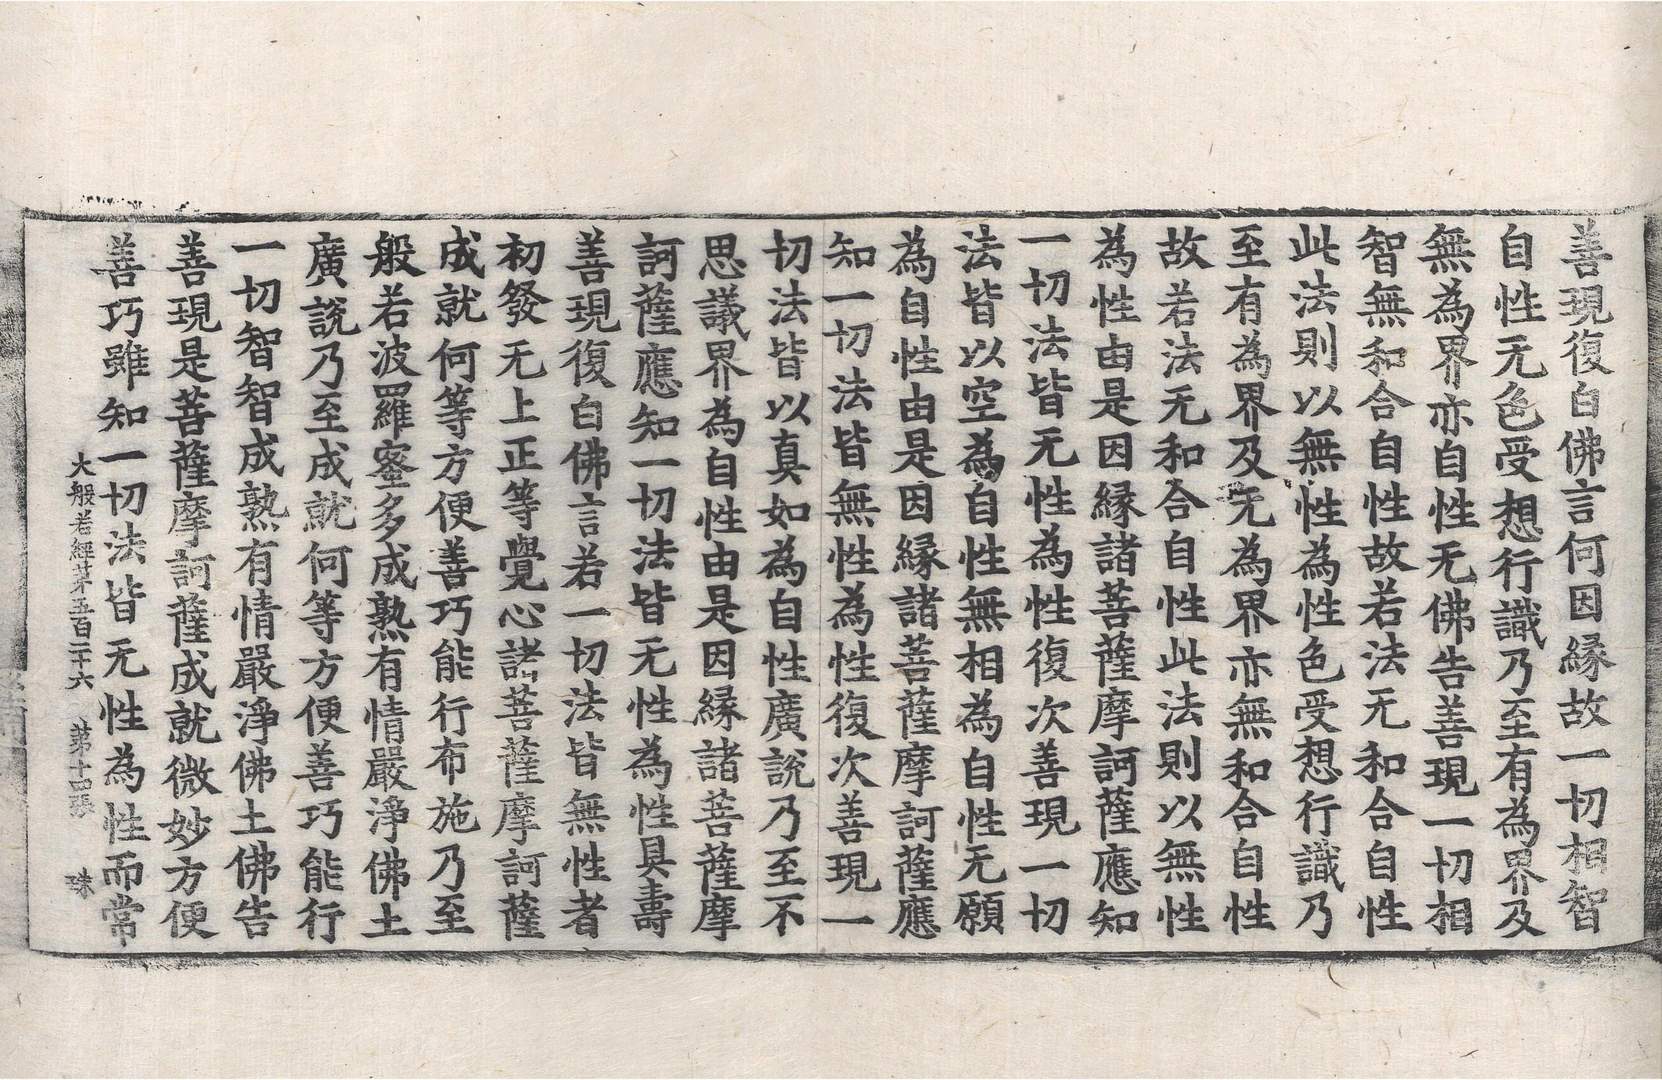 善現復白佛言何因縁故一切相智
自性无色受想行識乃至有為界及
無為界亦自性无佛告善現一切相
智無和合自性故若法无和合自性
此法則以無性為性色受想行識乃
至有為界及无為界亦無和合自性
故若法无和合自性此法則以無性
為性由是因縁諸菩薩摩訶薩應知
一切法皆无性為性復次善現一切
法皆以空為自性無相為自性无願
為自性由是因縁諸菩薩摩訶薩應
知一切法皆無性為性復次善現一
切法皆以真如為自性廣說乃至不
思議界為自性由是因縁諸菩薩摩
訶薩應知一切法皆无性為性具壽
善現復白佛言若一切法皆無性者
初發无上正等覺心諸菩薩摩訶薩
成就何等方便善巧能行布施乃至
般若波羅蜜多成熟有情嚴淨佛土
廣說乃至成就何等方便善巧能行
一切智智成熟有情嚴淨佛土佛告
善現是菩薩摩訶薩成就微妙方便
善巧雖知一切法皆无性為性而常
大般若經苐五百二十六 第十四張 珠